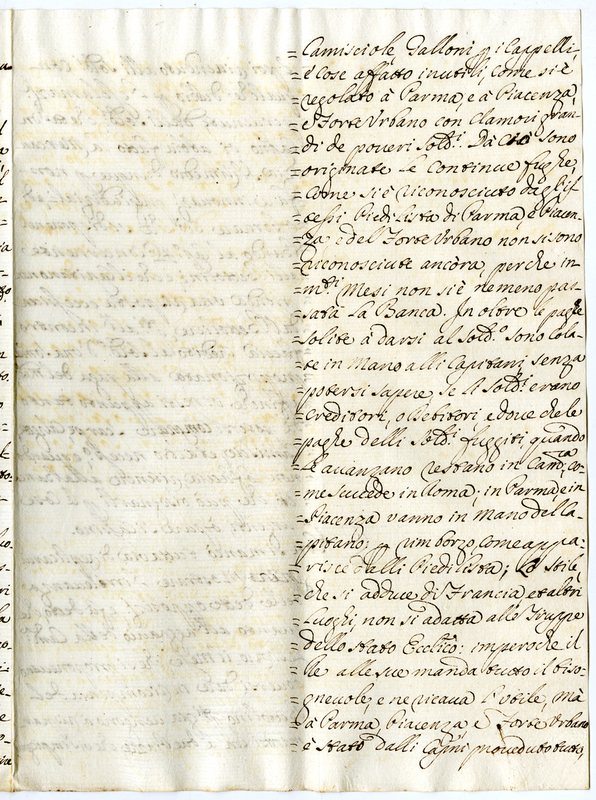 =Camisciole, Galloni p i Cappelli,
=e Cose affatto inutili, come si è
=regolato à Parma, e à Piacenza,
=e Forte Urbano con clamori gran-
=di de poveri Sold.i Dà Ciò sono
=originate le continue fughe
=come si è riconosciuto dagl'is-
=tessi Piedi Lista di Parma, e Piacen-
=za, e del Forte Urbano non si sono
=riconosciute ancòra, perche in
=m.ti Mesi non si è nemeno pas-
=sata la Banca. In oltre le paghe
=solite à darsi al Sold.o sono Cola-
=te in Mano alli Capitani, senza
=potersi sapere, se li Sold.i erano
=Creditori, o Debitori, e dove che le
=paghe delli Sold.i fuggiti, quando
=Le avanzano restano in Cam.ra, co-
=me succede in Roma; in Parma, e in
=Piacenza vanno in mano del Ca-
=pitano p rimborzo, come appa-
=risce dalli Piedi Lista; Lo stile
=che si adduce di Francia, et altri
=Luoghi, non si adatta alle Truppe
=dello Stato Eccl.ico: imperoche il
=Re alle sue manda tutto il biso-
=gnevole, e ne ricava l'utile, Mà
=à Parma, Piacenza, e Forte Urbano
=è stato dalli Cap.ni proveduto tutto,